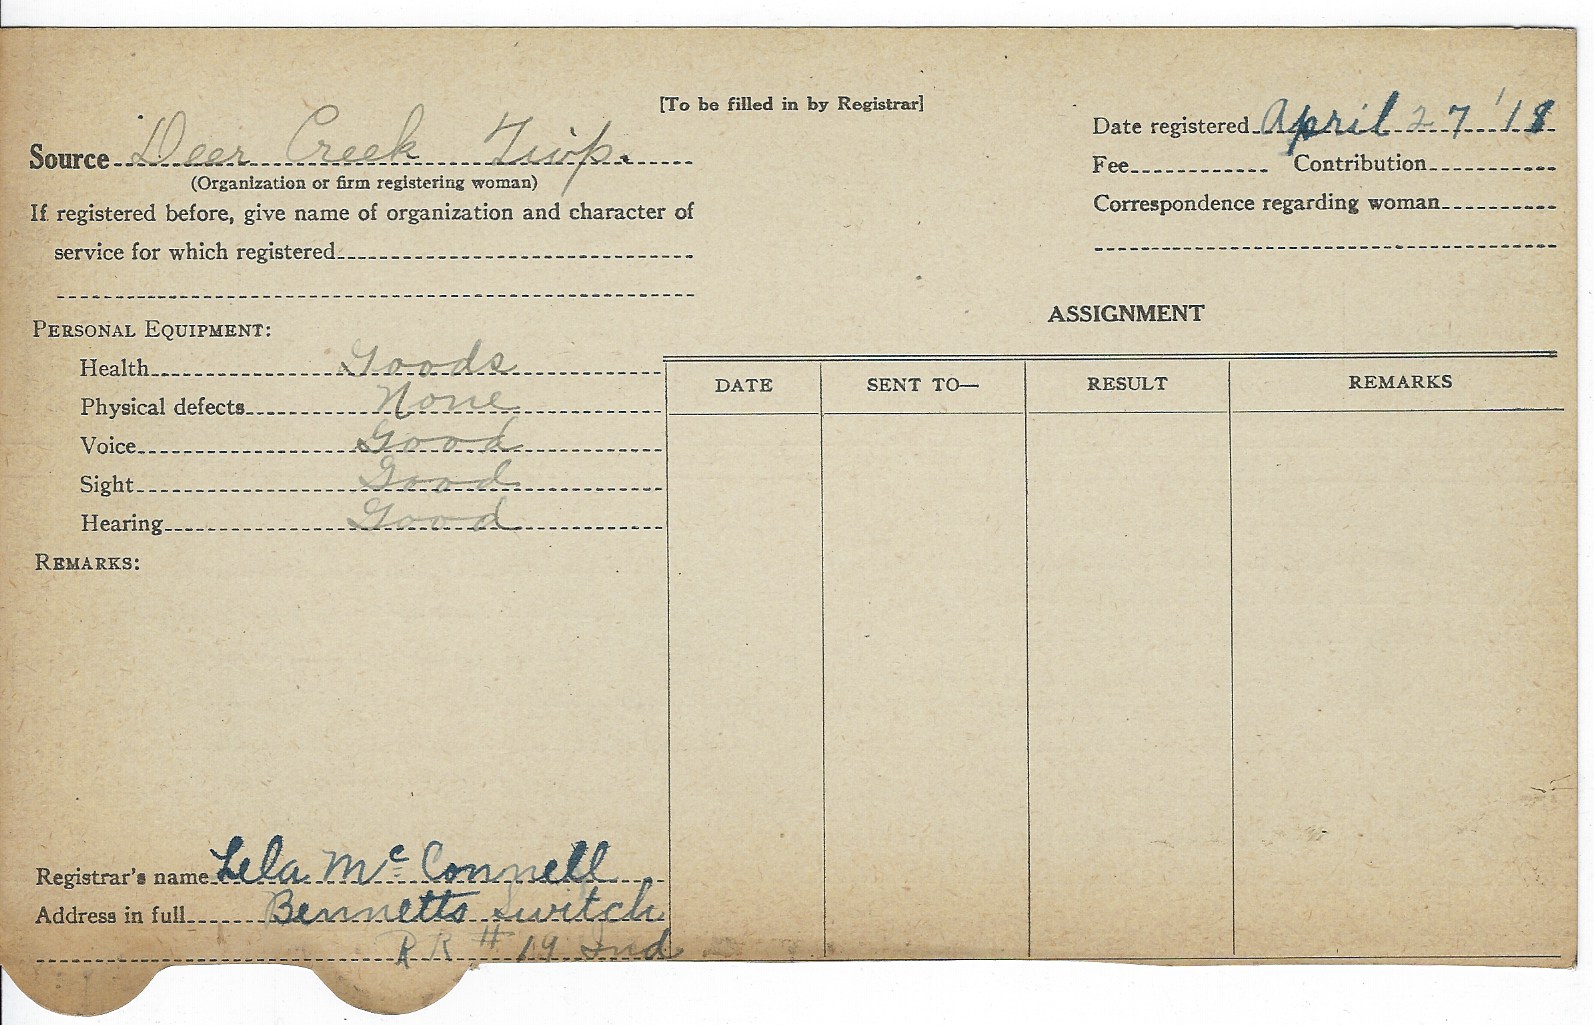 [To be filled in by Registrar]
Source Deer Creek Twp.
(Organization or firm registering woman)
If registered before, give name of organization and character of
service for which registered
Date registered April 27 '18
Fee Contribution
Correspondence regarding woman
PERSONAL EQUIPMENT:
Health Goods
Physical defects None
Voice Good
Sight Good
Hearing Good
REMARKS:
ASSIGNMENT
DATE SENT TO— RESULT REMARKS
Registrar's name Lela McConnell
Address in full Bennetts Switch
RR # 19 Ind